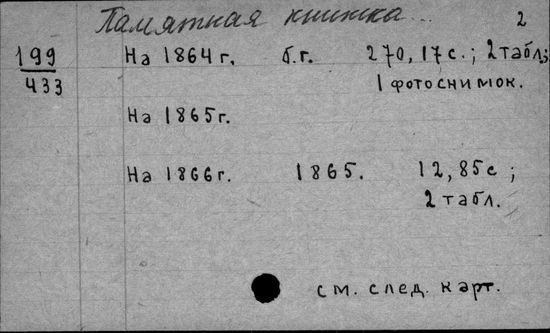 Памятная книжка... 2
199 На 1864 г. б.г. 270, 17 с.; 2 табл;
433 1 фотоснимок.
На 1865 г.
На 1866 г. 1865. 12, 85 с;
2 табл.
см. след. карт.